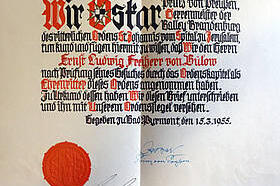 Wir Oskar Prinz von Preußen,
Herrenmeister der
Balley Brandenburg
des ritterlichen Ordens St. Johannis vom Spital zu Jerusalem
tun kund und fügen hiermit zu wissen, daß Wir den Herrn
Ernst Ludwig Freiherr von Bülow
nach Prüfung seines Gesuches durch das Ordenskapitel als
Ehrenritter dieses Ordens angenommen haben.
Zu Urkund dessen haben Wir diesen Brief unterschrieben
und ihn mit Unserem Ordenssiegel versehen.
Gegeben zu Bad Pyrmont, den 15.3.1955.